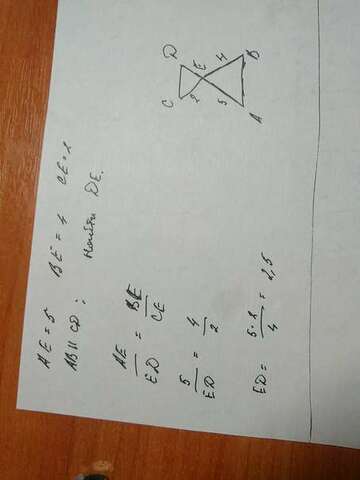 AE = 5 BE = 4 CE = 2
AB || CD ; Найти DE.
AE/ED = BE/CE
5/ED = 4/2
ED = 5·2/4 = 2,5
D
E
4
B
C
2
5
A